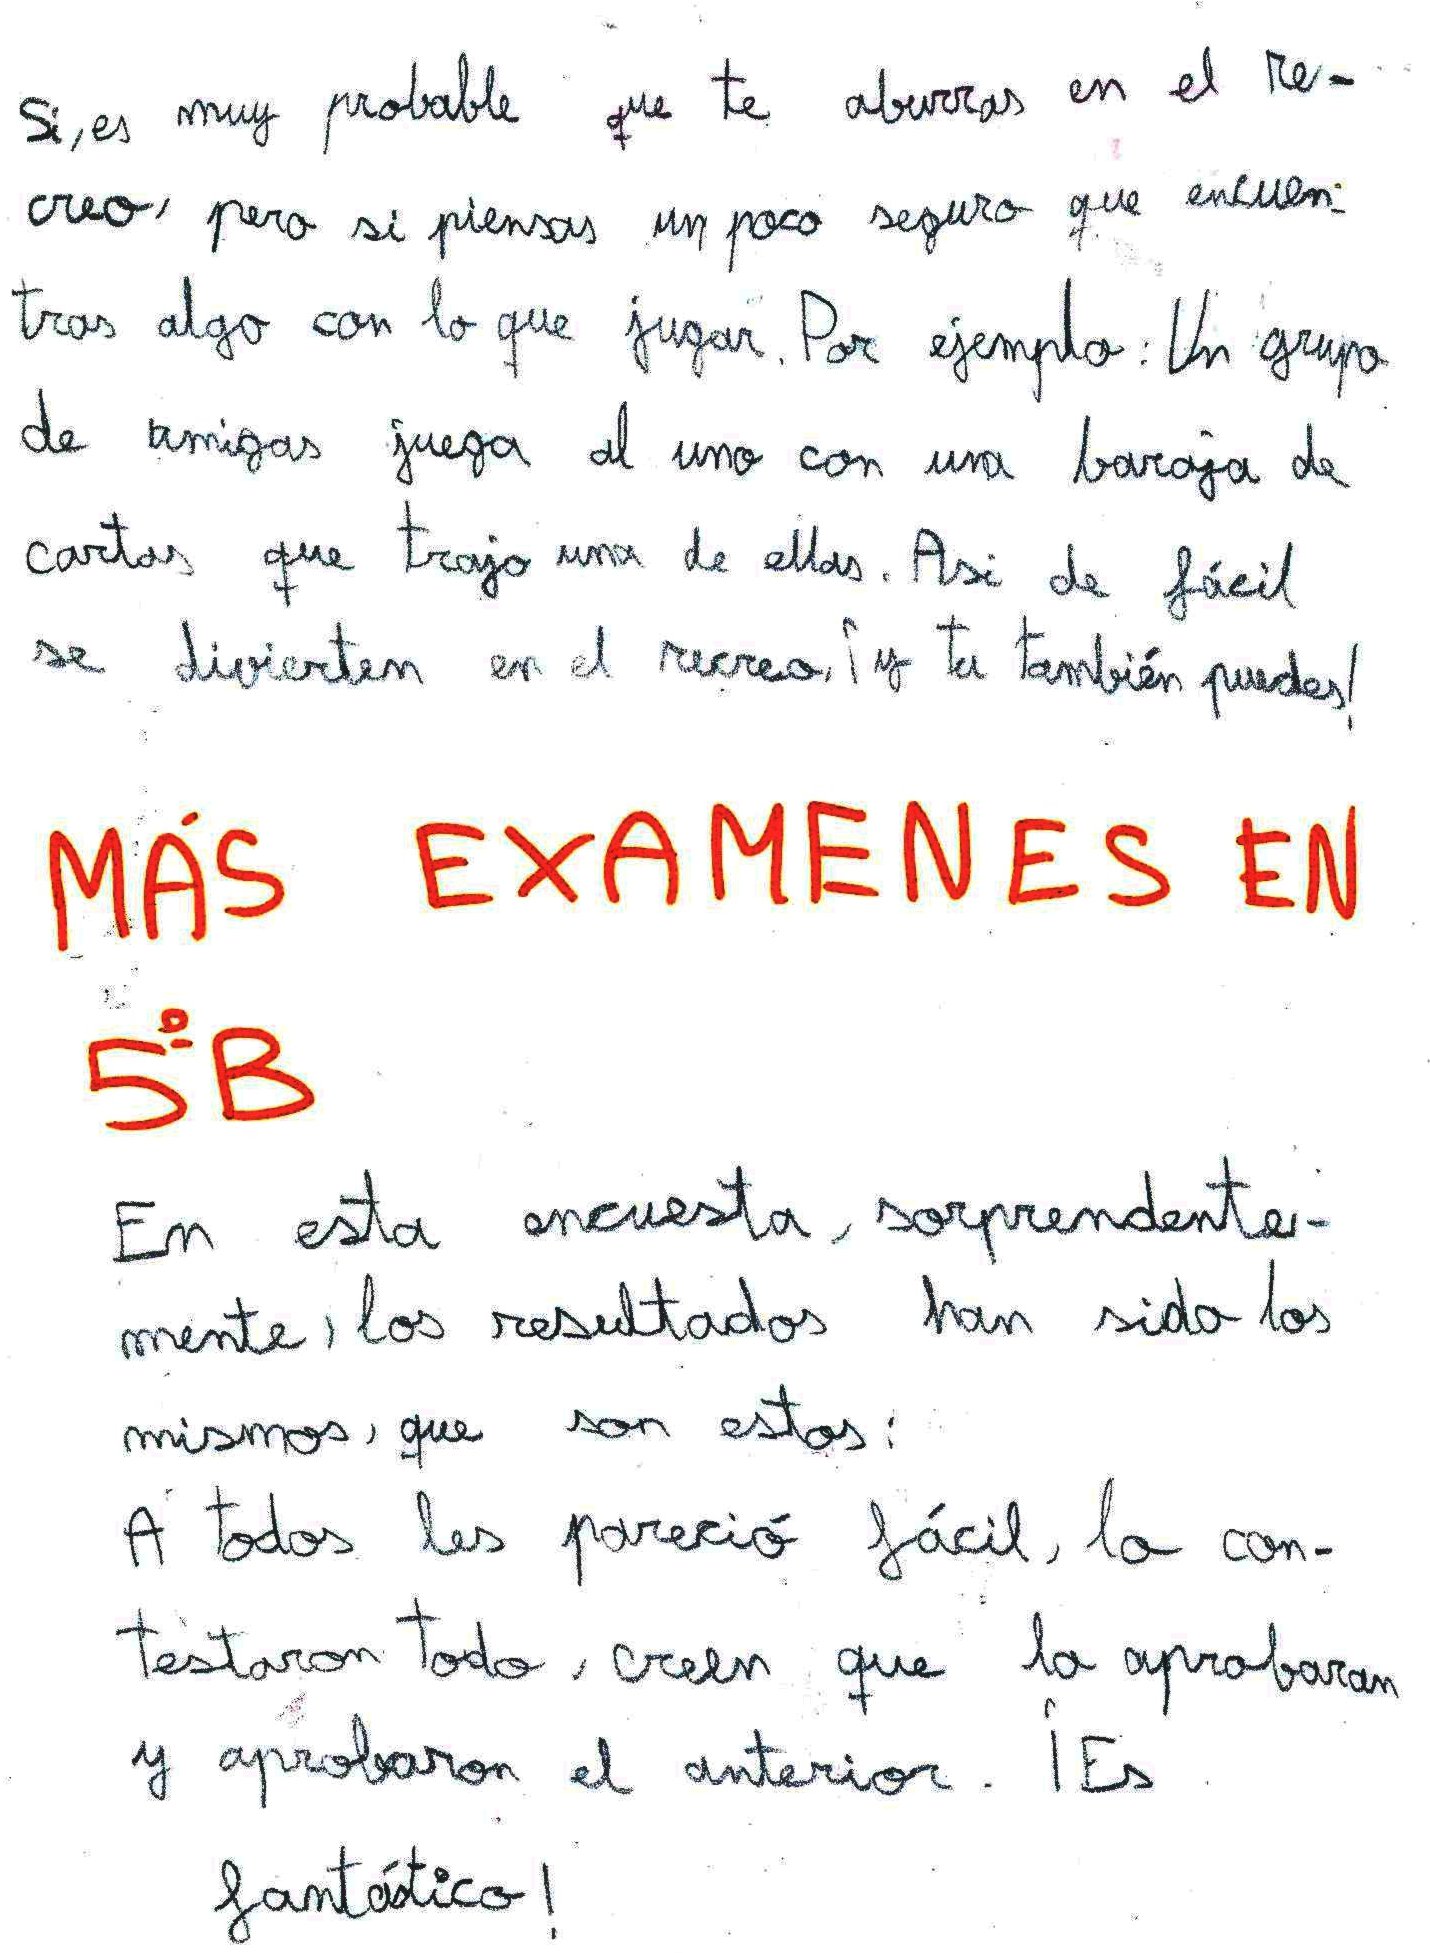 Si, es muy probable que te aburras en el re-
creo, pero si piensas un poco seguro que encuen-
tras algo con lo que jugar. Por ejemplo: Un grupo
de amigas juega al uno con una baraja de
cartas que trajo una de ellas. Asi de fácil
se divierten en el recreo, ¡y tu también puedes!
MÁS EXAMENES EN
5º B
En esta encuesta, sorprendente-
mente, los resultados han sido los
mismos, que son estos:
A todos les pareció fácil, lo con-
testaron todo, creen que lo aprobaran
y aprobaron el anterior. ¡Es
fantástico!